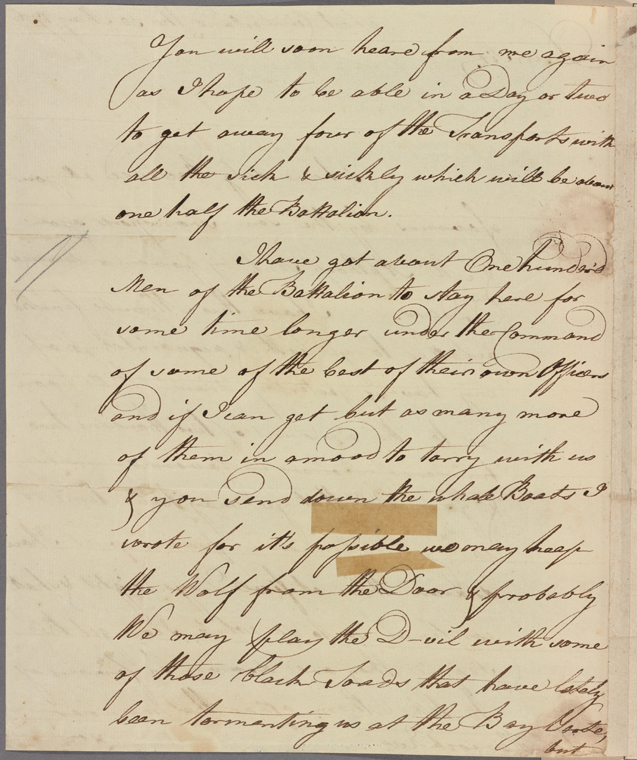 You will soon heare from me again
as I hope to be able in a Day or two
to get away four of the Transports with
all the sick & sickly which will be about
one half the Battalion.
I have got about One hundred
Men of the Battalion to stay here for
some time longer under the Command
of some of the best of their own Officers
and if I can get but as many more
of them in a mood to tarry with us
& you send down the whale Boats I
wrote for it's possible we may keep
the Wolf from the Door & probably
We may play the D-vil with some
of those black Toads that have lately
been tormenting us at the Bay
but